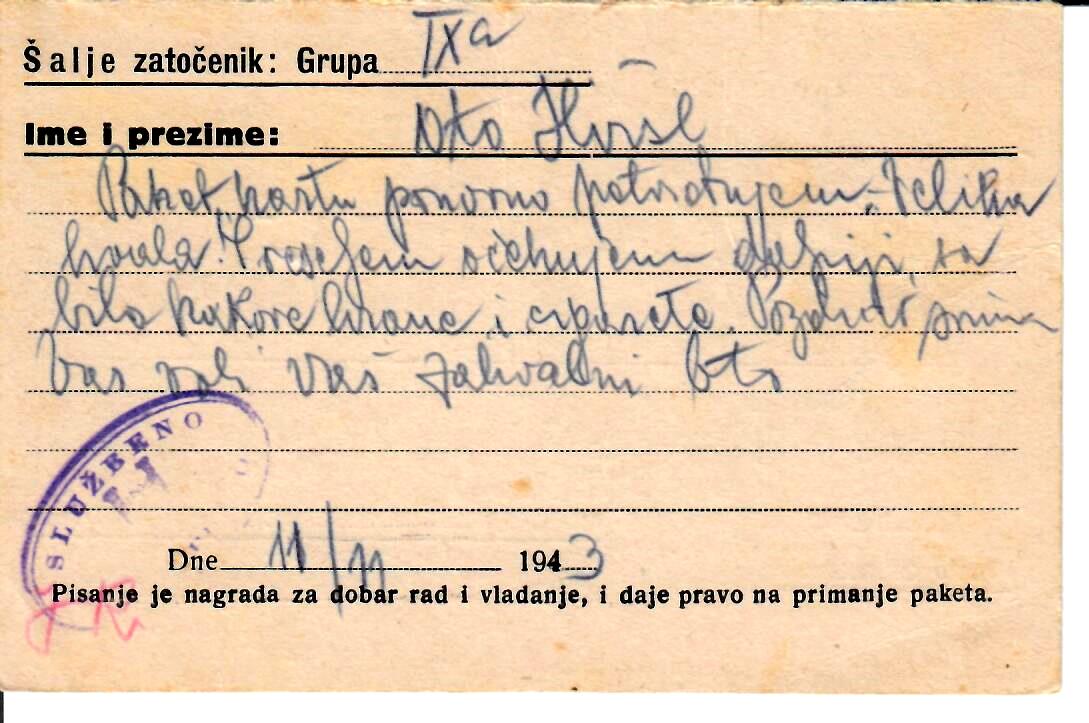 Šalje zatočenik: Grupa IXa
Ime i prezime: Oto
Paket, kartu ponovno potvrdujem. Velika
hvala! S veseljem očekujem daljnji, sa
bilo kakove hrane i cigarete. Pozdrav prima
Vas voli Vaš zahvalni Oto
SLUŽBENO
Dne 11/11 1943
Pisanje je nagrada za dobar rad i vladanje, i daje pravo na primanje paketa.